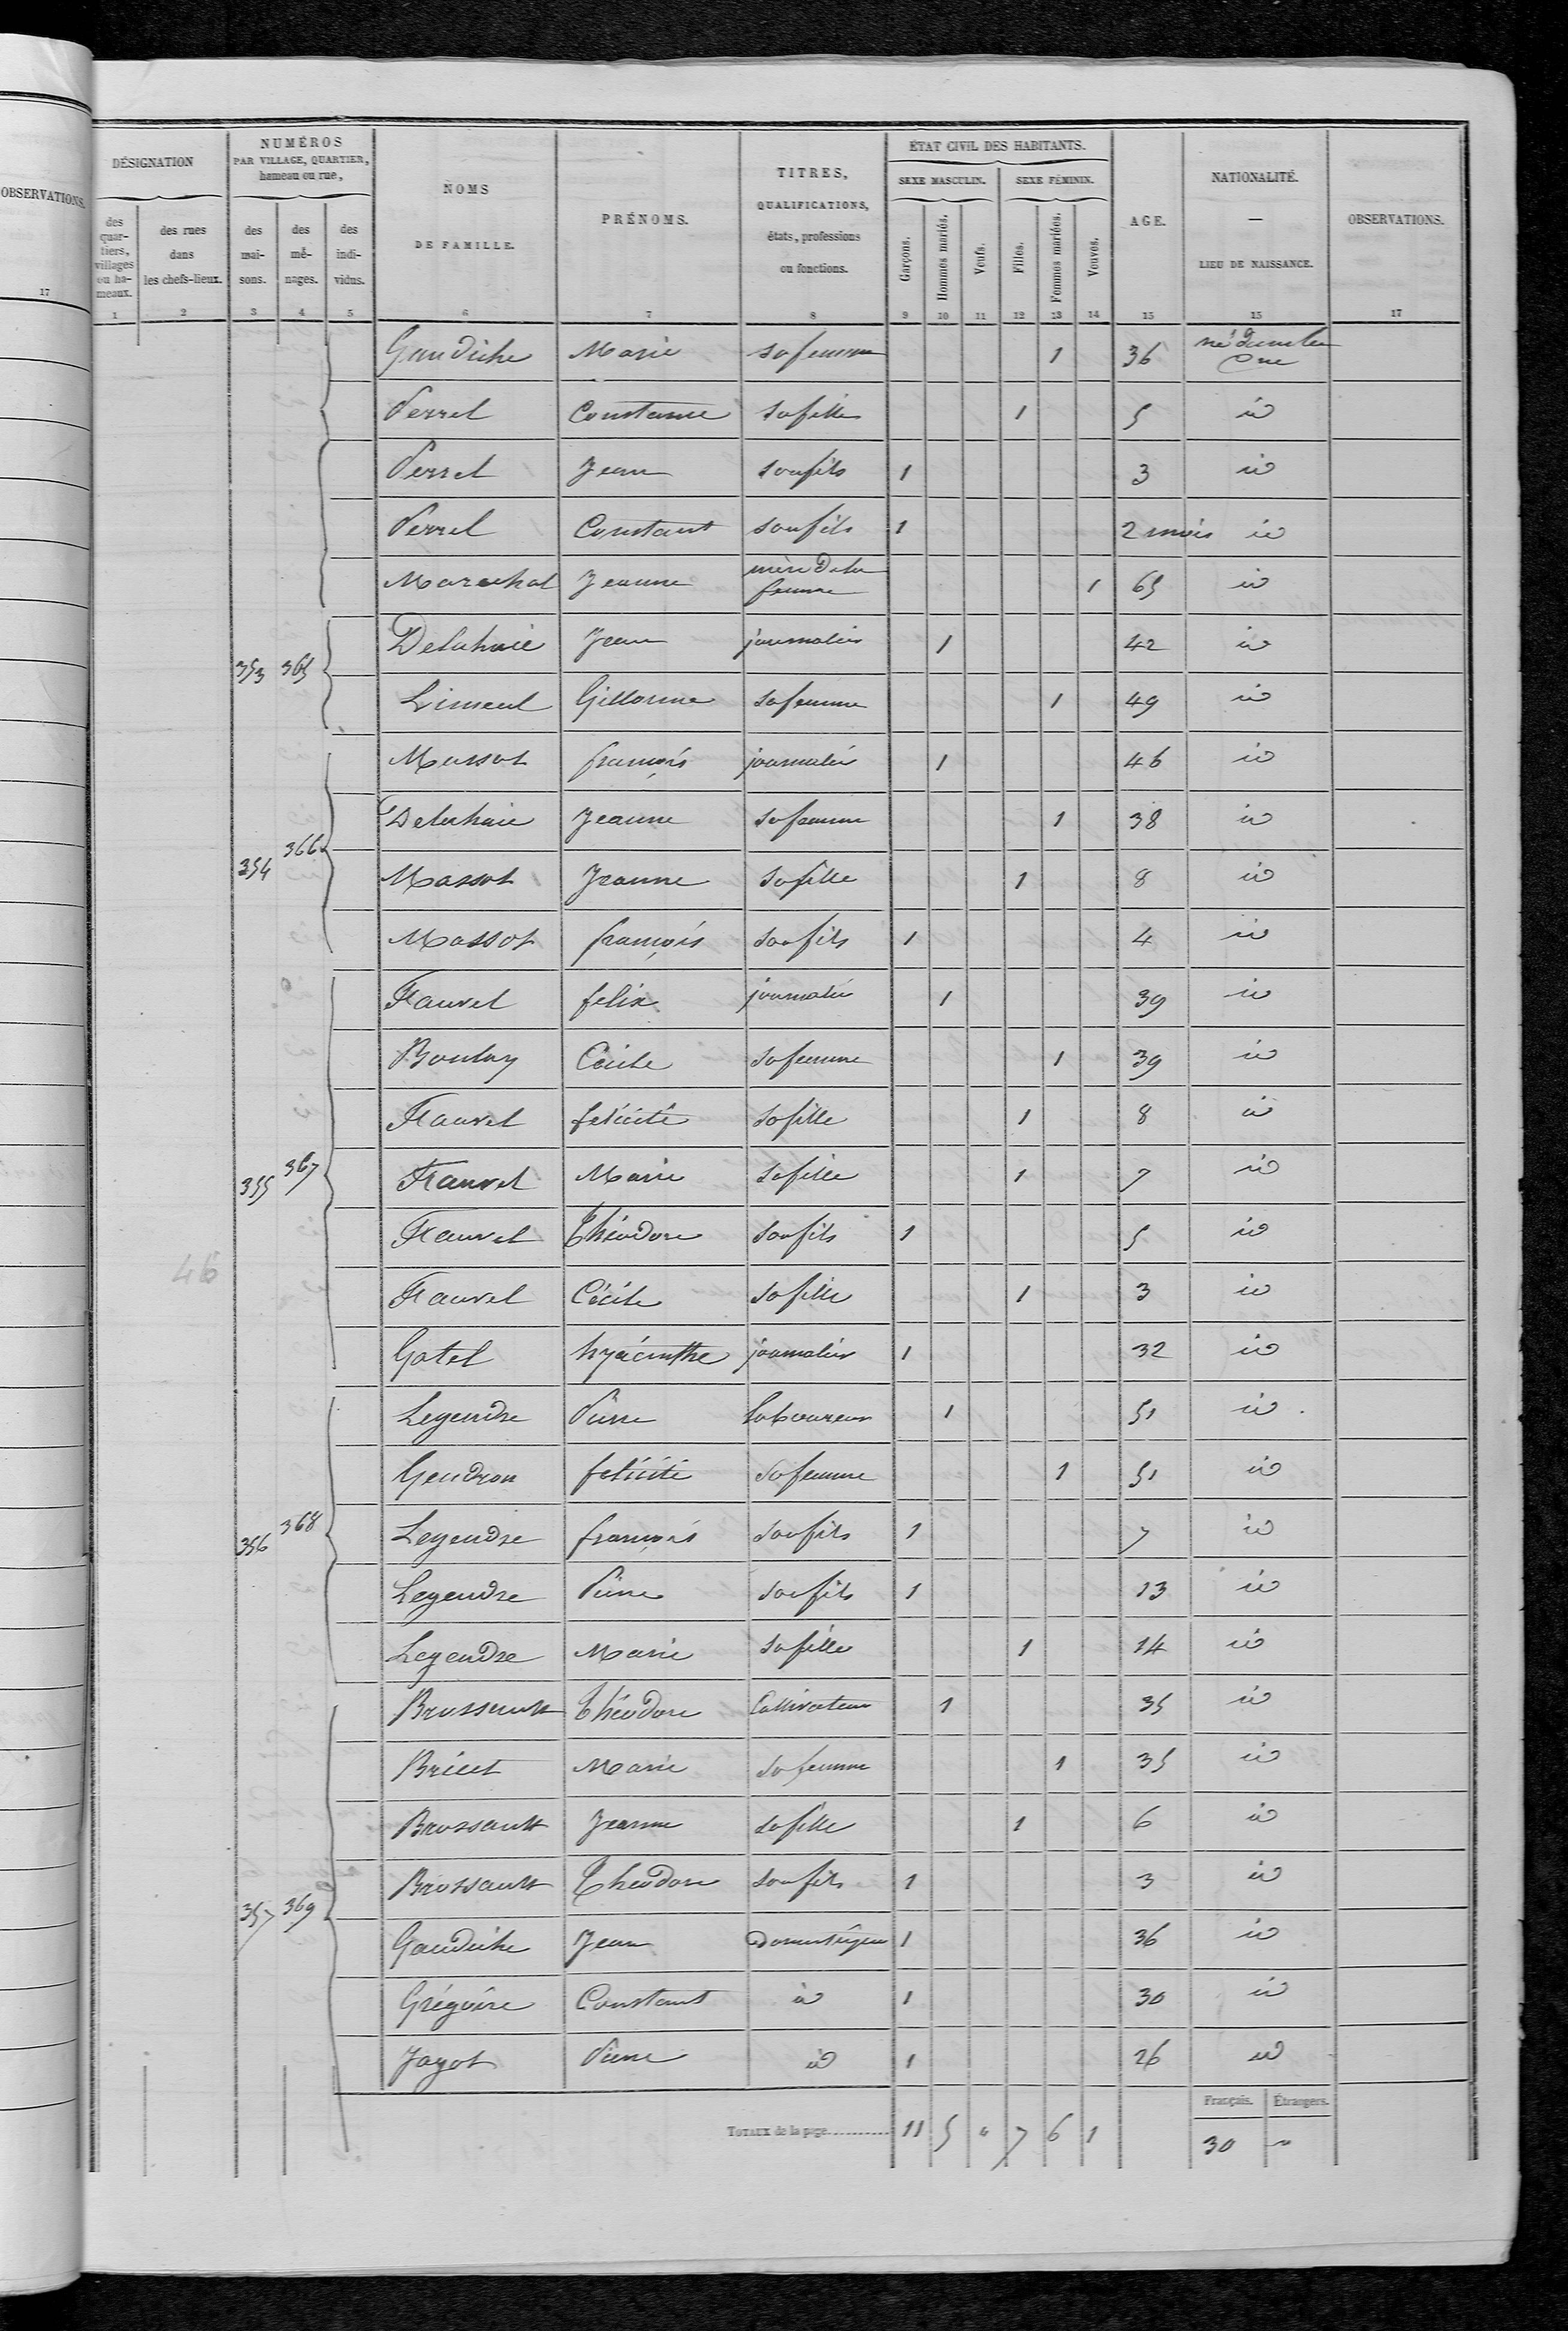 OBSERVATIONS.
17
DÉSIGNATION
NUMÉROS
PAR VILLAGE, QUARTIER,
hameau ou rue,
NOMS
DE FAMILLE.
PRÉNOMS.
TITRES,
QUALIFICATIONS,
états, professions
ou fonctions.
ÉTAT CIVIL DES HABITANTS.
SEXE MASCULIN.
SEXE FÉMININ.
AGE.
NATIONALITÉ.
—
LIEU DE NAISSANCE.
OBSERVATIONS.
des quar- tiers, villages ou ha- meaux.
des rues dans les chefs-lieux.
des mai- sons.
des mé- nages.
des indi- vidus.
Garçons.
Hommes mariés.
Veufs.
Filles.
Femmes mariées.
Veuves.
1 2 3 4 5 6 7 8 9 10 11 12 13 14 15 15 17
Gaudiche Marie sa femme 1 36 né dans la
Perrel Constance sa fille 1 5 id
Perrel Jean son fils 1 3 id
Perrel Constant son fils 1 2 mois id
Marechal Jeanne mère de la femme 1 65 id
353 365 Delahaie Jean journalier 1 42 id
Limeul Gillonne sa femme 1 49 id
Massot françois journalier 1 46 id
Delahaie Jeanne sa femme 1 38 id
354 366 Massot Jeanne sa fille 1 8 id
Massot françois son fils 1 4 id
Fauvel felix journalier 1 39 id
Boulay Cécile sa femme 1 39 id
Fauvel felicité sa fille 1 8 id
355 367 Fauvel Marie sa fille 1 7 id
Fauvel Théodore son fils 1 5 id
46
Fauvel Cécile sa fille 1 3 id
Gatel hyacinthe journalier 1 32 id
Legendre Pierre laboureur 1 51 id
Gendron felicité sa femme 1 51 id
356 368 Legendre françois son fils 1 7 id
Legendre Pierre son fils 1 13 id
Legendre Marie sa fille 1 14 id
Brossault Théodore Cultivateur 1 35 id
Bricet Marie sa femme 1 35 id
Brossault Jeanne sa fille 1 6 id
357 369 Brossault Théodore son fils 1 3 id
Gaudiche Jean domestique 1 36 id
Grégoire Constant id 1 30 id
Jagot Pierre id 1 26 id
TOTAUX de la page 11 5 " 7 6 1
Français. Étrangers.
30 "